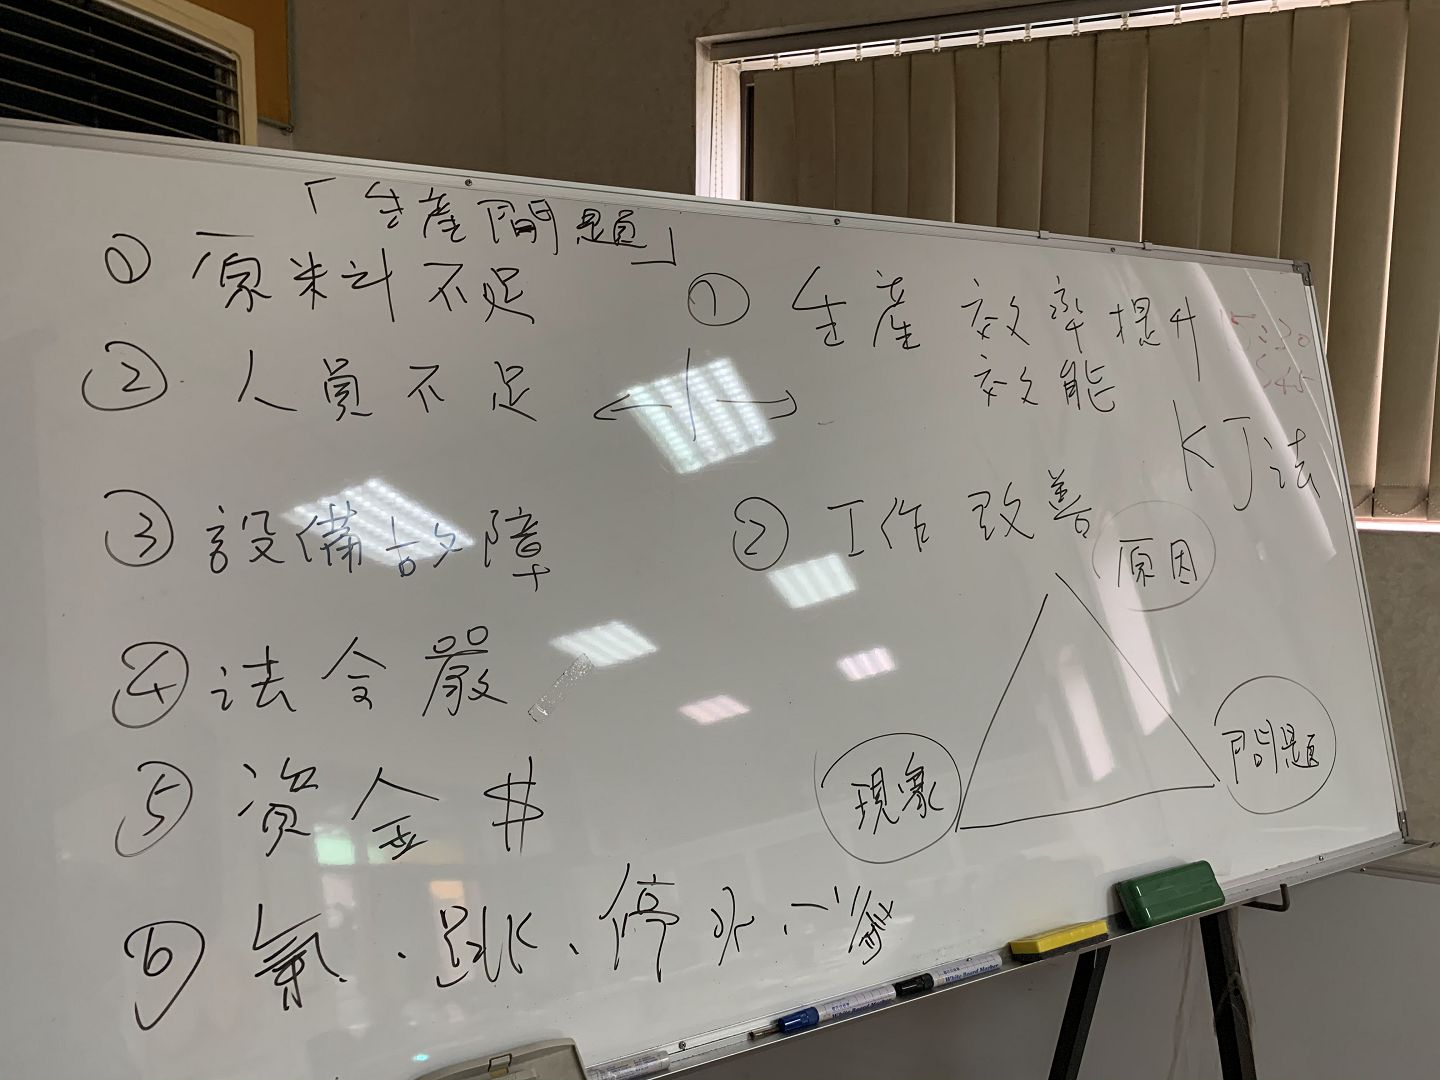 「生產問題」
① 原料不足
② 人員不足
③ 設備故障
④ 法令嚴
⑤ 資金 $
⑥ 氣、跳、停水、
① 生產效率提升
效能
KJ法
② 工作改善
原因
現象
問題
White Board Marker
White Board Marker